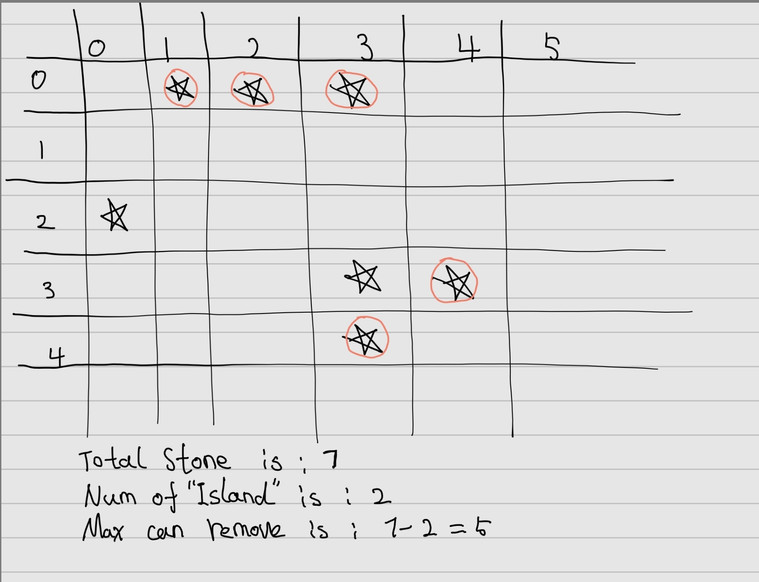 0 1 2 3 4 5
0
1
2
3
4
Total Stone is : 7
Num of "Island" is : 2
Max can remove is : 7-2 = 5